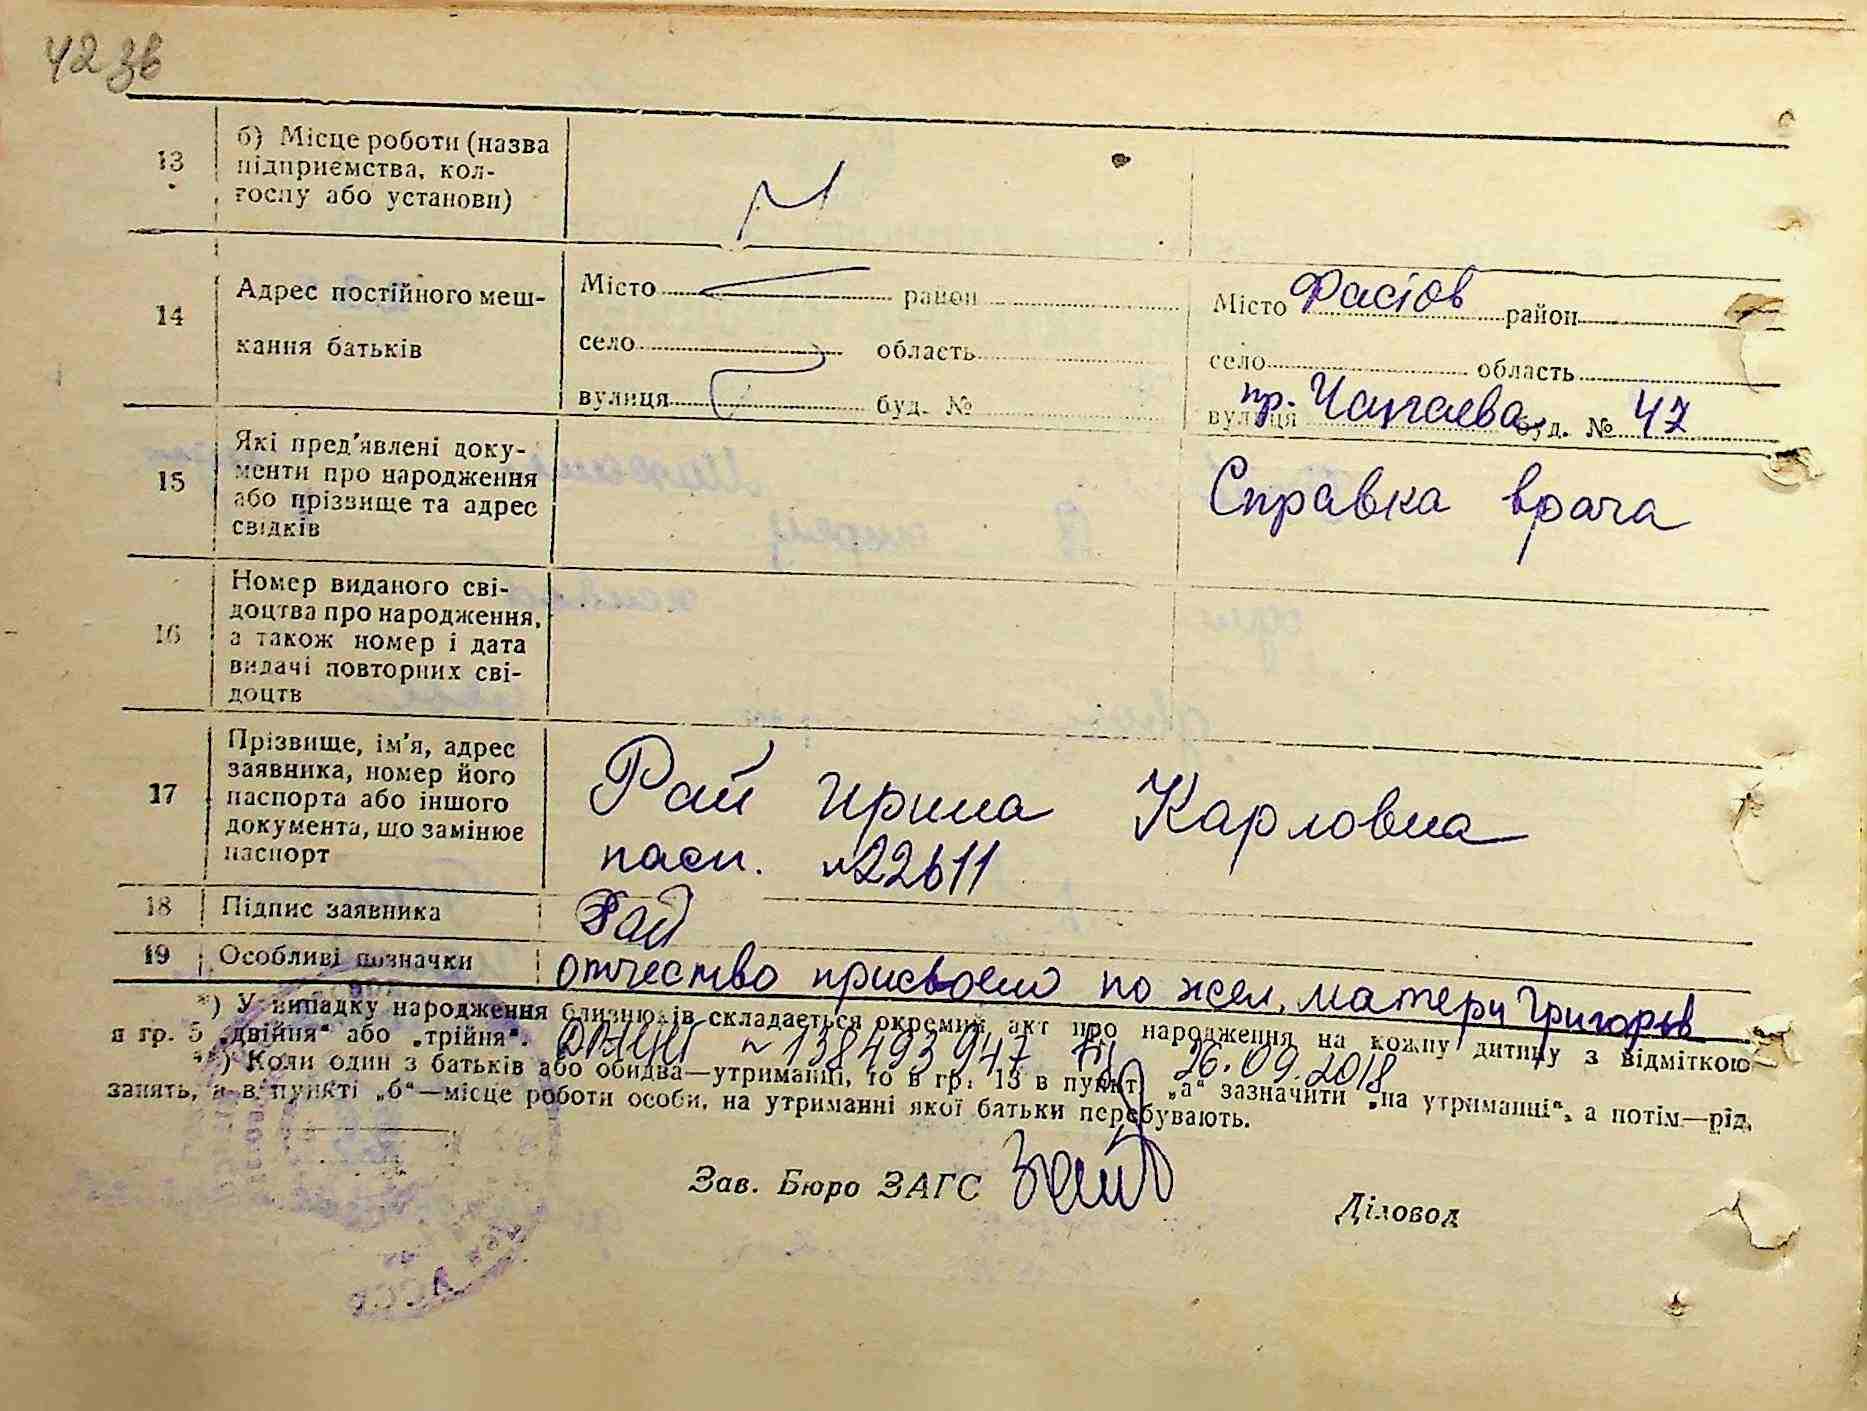 42 зв
13
б) Місце роботи (назва
підприємства, кол-
госпу або установи)
14
Адрес постійного меш-
кання батьків
Місто район
село область
вулиця буд. №
Місто Фастов район
село область
вулиця пр. Чапаева буд. № 47
15
Які пред'явлені доку-
менти про народження
або прізвище та адрес
свідків
Справка врача
16
Номер виданого сві-
доцтва про народження,
а також номер і дата
видачі повторних сві-
доцтв
17
Прізвище, ім'я, адрес
заявника, номер його
паспорта або іншого
документа, що замінює
паспорт
Рай Ирина Карловна
пасп. №22611
18 Підпис заявника Рай
19 Особливі позначки отчество присвоено по жел. матери Григорьев
*) У випадку народження близнюків складається окремий акт про народження на кожну дитину з відміткою
в гр. 5 „двійня“ або „трійня“.
№ 138493947 26.09.2018
**) Коли один з батьків або обидва—утриманці, то в гр. 13 в пункті „а“ зазначити „на утриманні“, а потім—рід
занять, а в пункті „б“—місце роботи особи, на утриманні якої батьки перебувають.
Зав. Бюро ЗАГС
Діловод